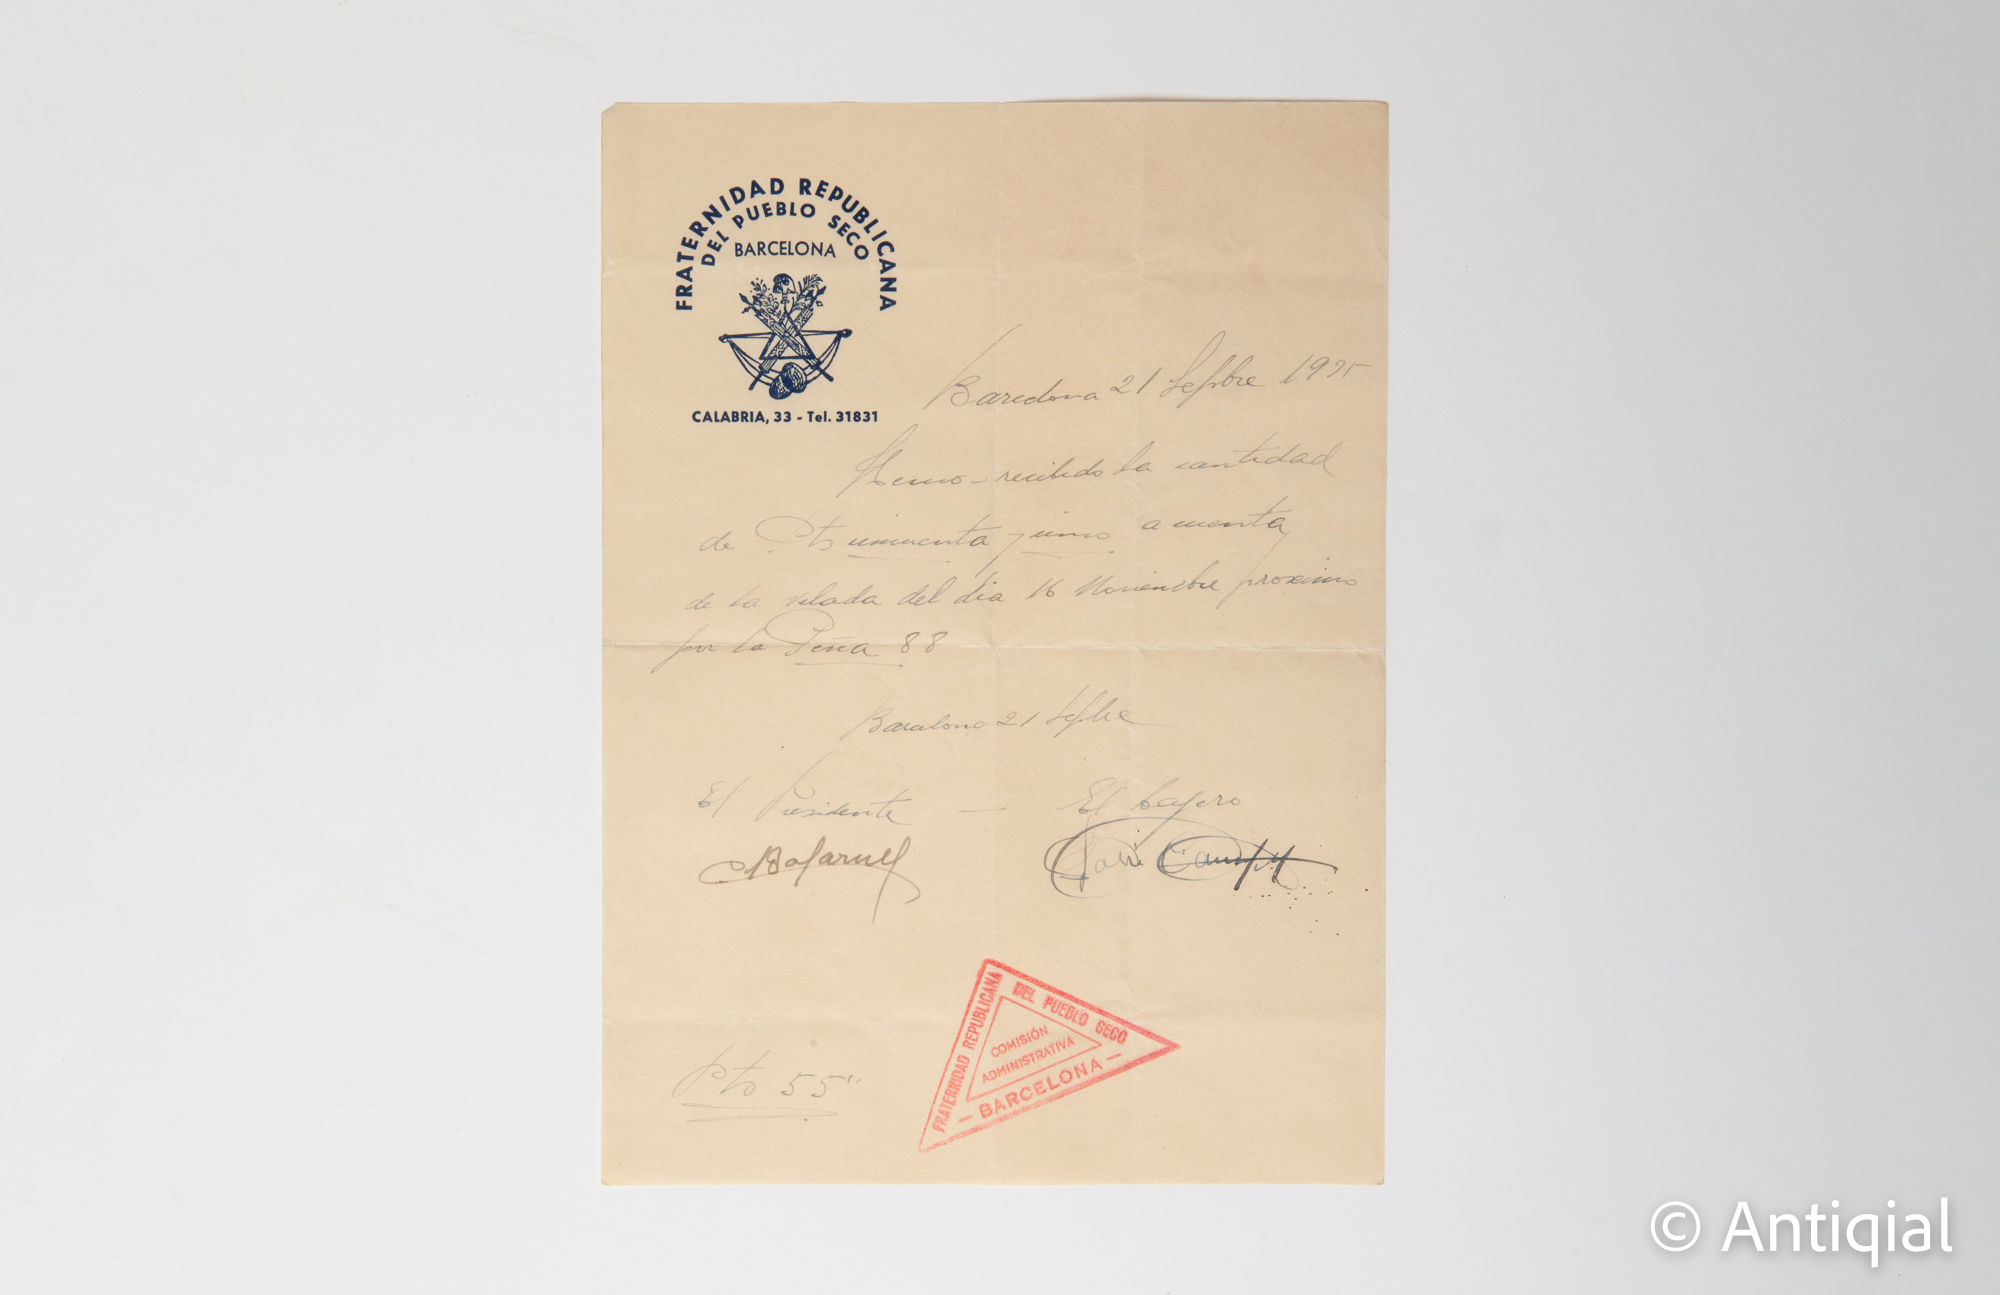 FRATERNIDAD REPUBLICANA
DEL PUEBLO SECO
BARCELONA
CALABRIA, 33 - Tel. 31831
Barcelona 21 Sepbre
recibido la cantidad
de Pts cincuenta a cuenta
de la velada del dia 16 Noviembre proximo
por la Peña 88
Barcelona 21 Sepbre
El Presidente — El Cajero
FRATERNIDAD REPUBLICANA
DEL PUEBLO SECO
COMISIÓN
ADMINISTRATIVA
— BARCELONA —
Pts 55"
© Antiqial